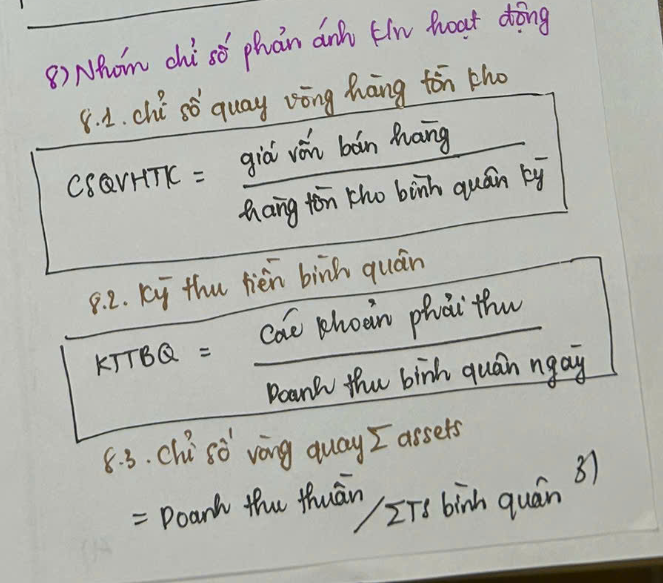 8) Nhóm chỉ số phản ánh kln hoạt động
8.1. chỉ số quay vòng hàng tồn kho
CSQVHTK = giá vốn bán hàng
hàng tồn kho bình quân kỳ
8.2. Kỳ thu tiền bình quân
KTTBQ = Các khoản phải thu
Doanh thu bình quân ngày
8.3. Chỉ số vòng quay Σ assets
= Doanh thu thuần / ΣTS bình quân 3)